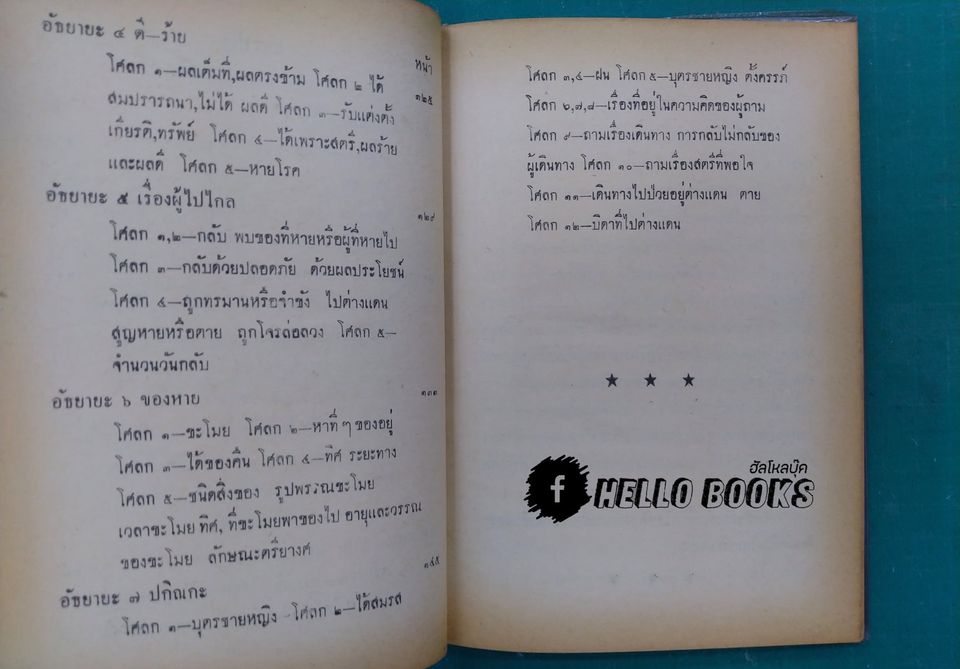 อัธยายะ ๔ ดี—ร้าย
หน้า
โศลก ๑—ผลเต็มที่,ผลตรงข้าม โศลก ๒ ได้
๑๒๕
สมปรารถนา,ไม่ได้ ผลดี โศลก ๓—รับแต่งตั้ง
เกียรติ,ทรัพย์ โศลก ๔—ได้เพราะสตรี,ผลร้าย
และผลดี โศลก ๕—หายโรค
อัธยายะ ๕ เรื่องผู้ไปไกล
๑๒๙
โศลก ๑,๒—กลับ พบของที่หายหรือผู้ที่หายไป
โศลก ๓—กลับด้วยปลอดภัย ด้วยผลประโยชน์
โศลก ๔—ถูกทรมานหรือจำขัง ไปต่างแดน
สูญหายหรือตาย ถูกโจรล่อลวง โศลก ๕—
จำนวนวันกลับ
อัธยายะ ๖ ของหาย
๑๓๓
โศลก ๑—ขะโมย โศลก ๒—หาที่ ๆ ของอยู่
โศลก ๓—ได้ของคืน โศลก ๔—ทิศ ระยะทาง
โศลก ๕—ชนิดสิ่งของ รูปพรรณขะโมย
เวลาขะโมย ทิศ, ที่ขะโมยพาของไป อายุและวรรณ
ของขะโมย ลักษณะตรียางศ์
อัธยายะ ๗ ปกิณกะ
๑๔๕
โศลก ๑—บุตรชายหญิง โศลก ๒—ได้สมรส
โศลก ๓,๔—ฝน โศลก ๕—บุตรชายหญิง ตั้งครรภ์
โศลก ๖,๗,๘—เรื่องที่อยู่ในความคิดของผู้ถาม
โศลก ๙—ถามเรื่องเดินทาง การกลับไม่กลับของ
ผู้เดินทาง โศลก ๑๐—ถามเรื่องสตรีที่พอใจ
โศลก ๑๑—เดินทางไปป่วยอยู่ต่างแดน ตาย
โศลก ๑๒—บิดาที่ไปต่างแดน
★ ★ ★
ฮัลโหลบุ๊ค
f HELLO BOOKS